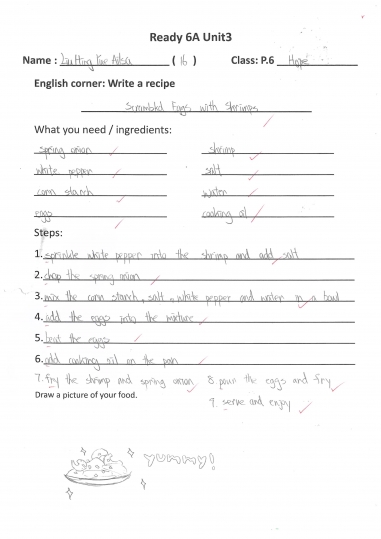 Ready 6A Unit3
Name : Liu Hting Yee Ailsa ( 16 ) Class: P.6 Hope
English corner: Write a recipe
Scrambled Eggs with Shrimps
What you need / ingredients:
spring onion shrimp
white pepper salt
corn starch water
eggs cooking oil
Steps:
1. sprinkle white pepper into the shrimp and add salt
2. chop the spring onion
3. mix the corn starch, salt, white pepper and water in a bowl
4. add the eggs into the mixture
5. beat the eggs
6. add cooking oil on the pan
7. fry the shrimp and spring onion 8. pour the eggs and fry
Draw a picture of your food. 9. serve and enjoy
YUMMY!